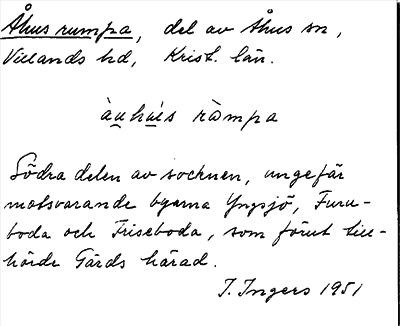 Åhus rumpa, del av Åhus sn,
Villands hd, Krist. län.
àuhúis ràmpa
Södra delen av socknen, ungefär
motsvarande byarna Yngsjö, Furu-
boda och Friseboda, som förut till-
hörde Gärds härad.
I. Ingers 1951